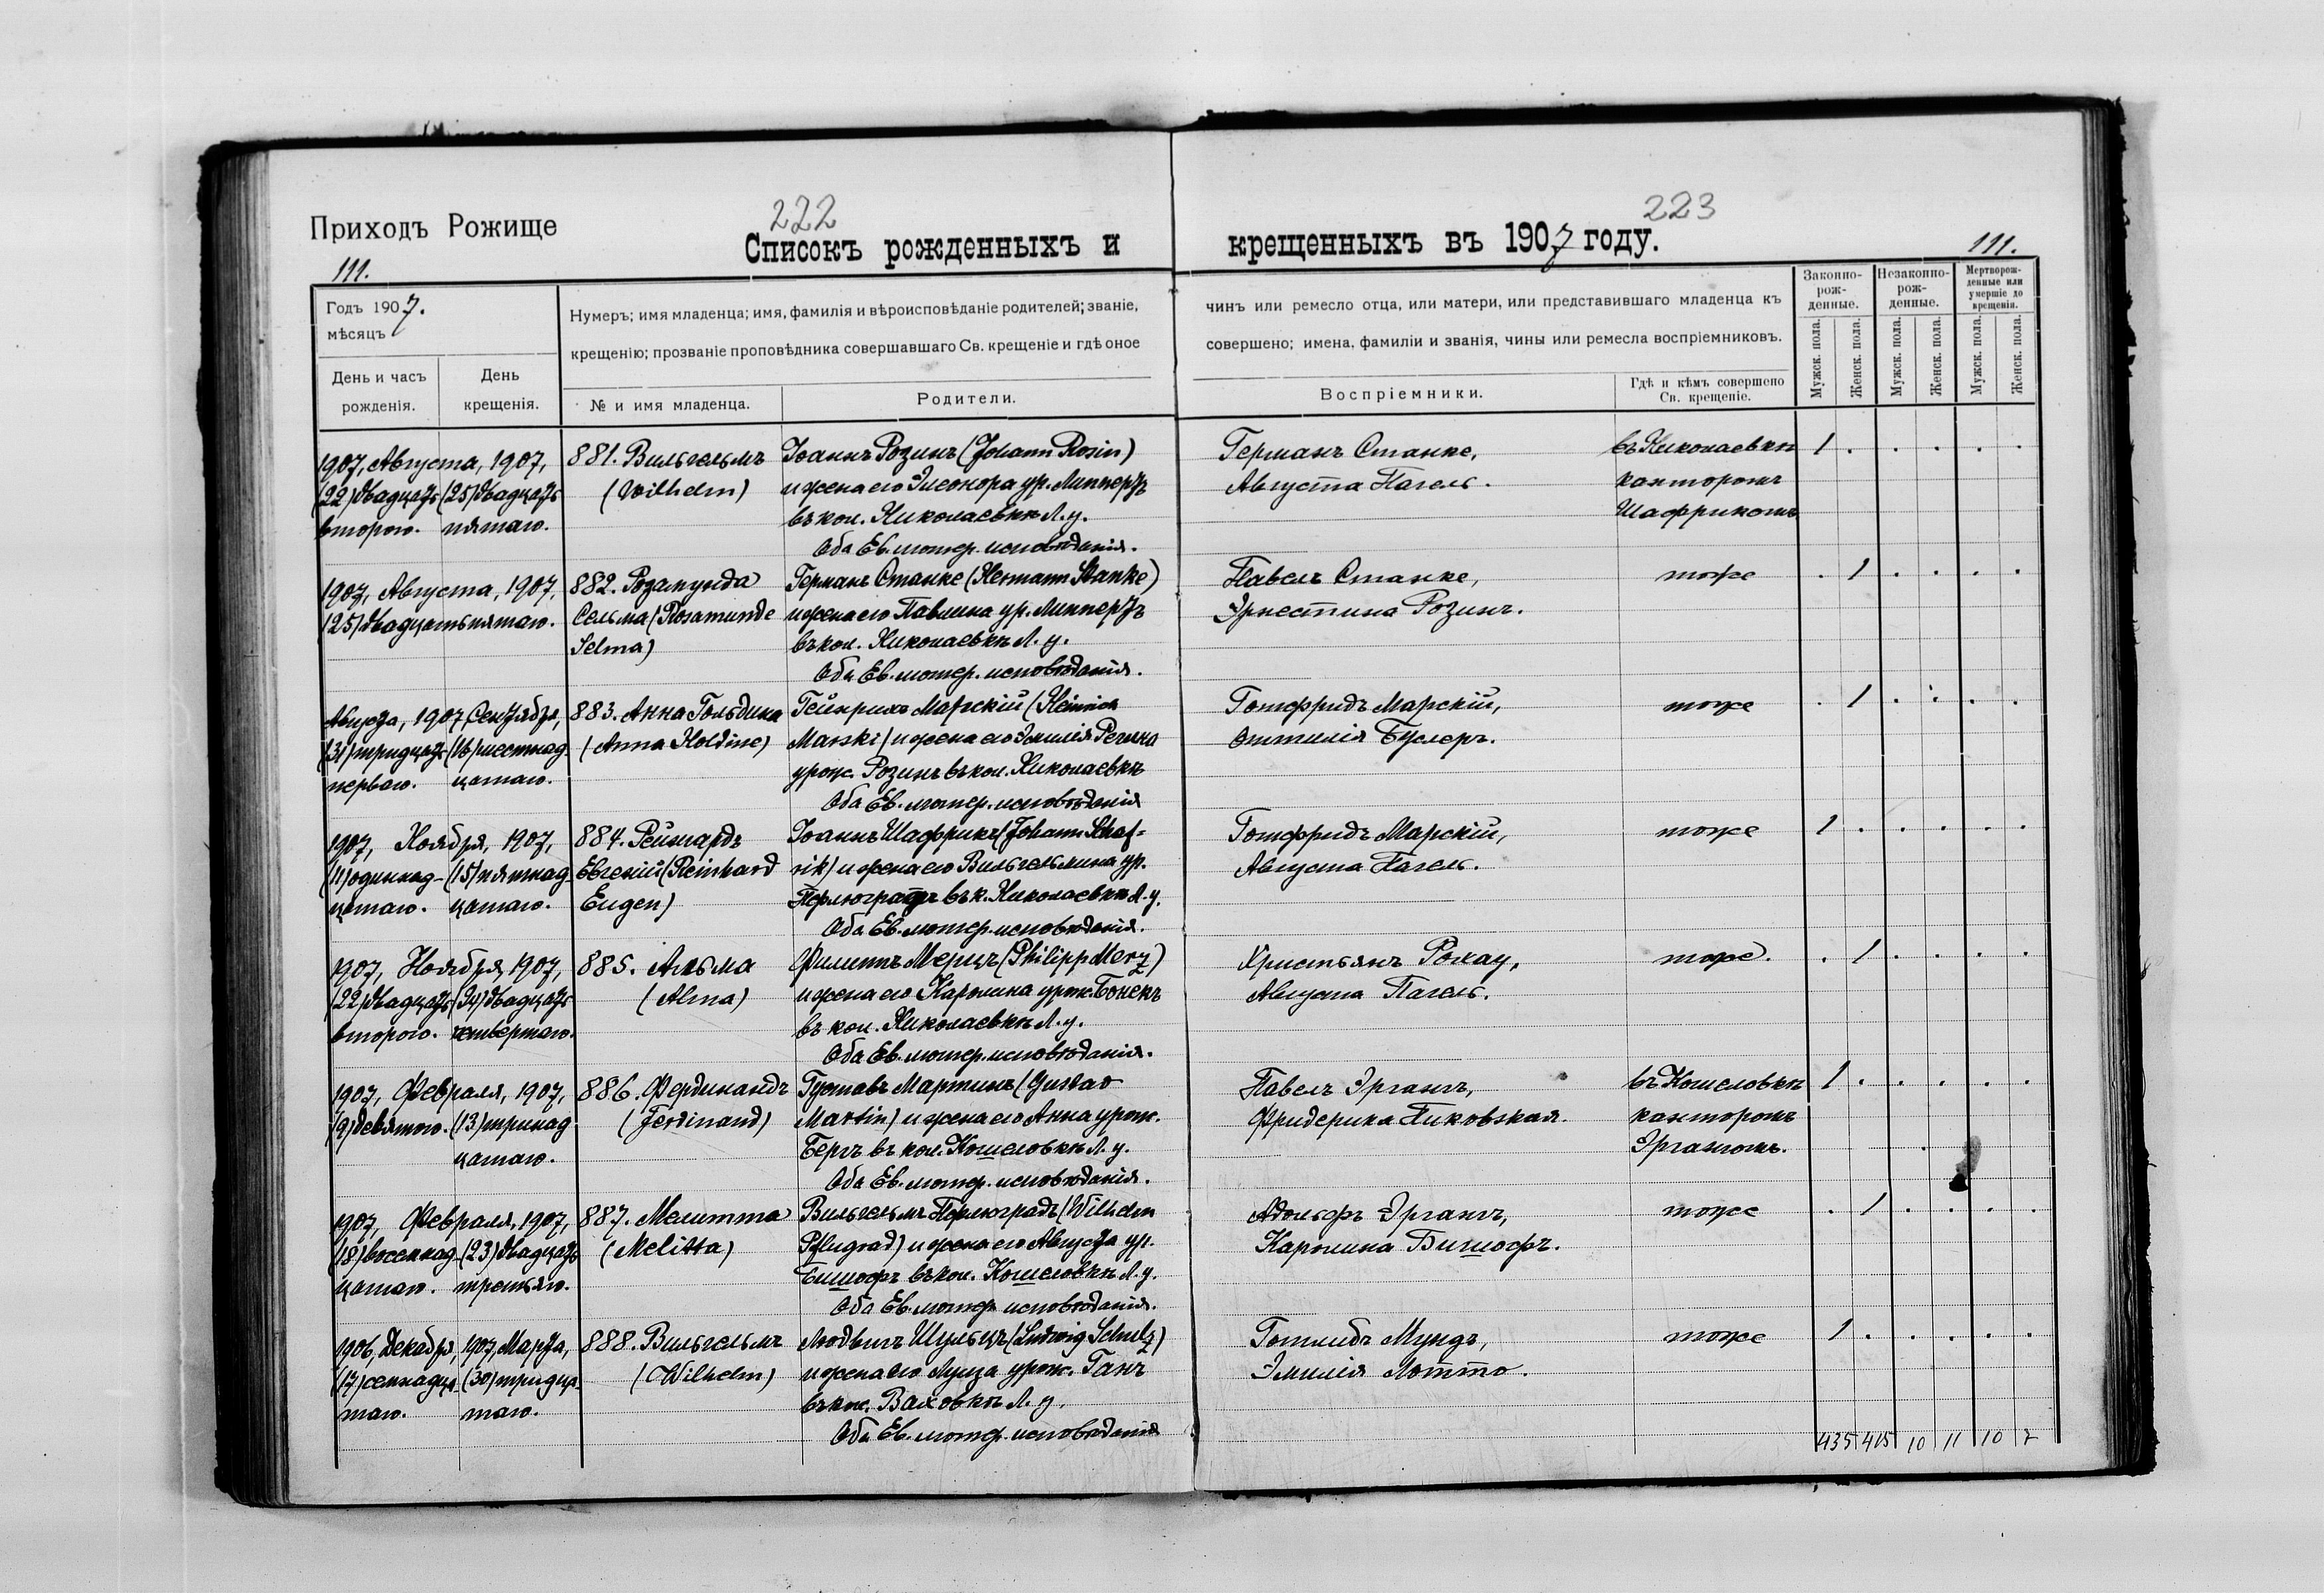 222
223
Приходъ Рожище
Списокъ рожденныхъ и
крещенныхъ въ 1907 году.
111.
111.
Годъ 1907.
мѣсяцъ
День и часъ рожденія.
День крещенія.
Нумеръ; имя младенца; имя, фамилія и вѣроисповѣданіе родителей; званіе,
крещенію; прозваніе проповѣдника совершавшаго Св. крещеніе и гдѣ оное
№ и имя младенца.
Родители.
чинъ или ремесло отца, или матери, или представившаго младенца къ
совершено; имена, фамиліи и званія, чины или ремесла воспріемниковъ.
Воспріемники.
Гдѣ и кѣмъ совершено
Св. крещеніе.
Законно-
рож-
денные.
Незаконно-
рож-
денные.
Мертворож-
денные или
умершіе до
крещенія.
Мужск. пола.
Женск. пола.
Мужск. пола.
Женск. пола.
Мужск. пола.
Женск. пола.
1907, Августа, 1907, 881. Вильгельмъ Іоаннъ Розинъ (Johann Rosin) Германъ Станке, въ Николаевкѣ 1 . . . . .
(22) двадцать (25) двадцать (Wilhelm) и жена его Элеонора ур. Липпертъ Августа Пагель. канторомъ
второго. пятаго. въ кол. Николаевкѣ Л. у. Шаффрикомъ
Оба Ев. лютер. исповѣданія.
1907, Августа, 1907, 882. Розамунда Германъ Станке (Hermann Stanke) Павелъ Станке, тоже . 1 . . . .
(25) двадцать пятаго. Сельма (Rosamunde и жена его Павлина ур. Липпертъ Эрнестина Розинъ.
Selma) въ кол. Николаевкѣ Л. у.
Оба Ев. лютер. исповѣданія.
Августа, 1907 Сентября, 883. Анна Гольдина Гейнрихъ Марскій (Heinrich Готфридъ Марскій, тоже . 1 . . . .
(31) тридцать (16) шестнад- (Anna Holdine) Marski) и жена его Эмилія Регина Оттилія Буслеръ.
перваго. цатаго. урож. Розинъ въ кол. Николаевкѣ
Оба Ев. лютер. исповѣданія
1907, Ноября, 1907, 884. Рейнгардъ Іоаннъ Шаффрикъ (Johann Schaf- Готфридъ Марскій, тоже 1 . . . . .
(11) одиннад- (15) пятнад- Евгеній (Reinhard rik) и жена его Вильгельмина ур. Августа Пагель.
цатаго. цатаго. Eugen) Пфлюградтъ въ к. Николаевкѣ Л. у.
Оба Ев. лютер. исповѣданія.
1907, Ноября, 1907, 885. Альма Филиппъ Мерцъ (Philipp Merz) Христьянъ Рохау, тоже. . 1 . . . .
(22) двадцать (24) двадцать (Alma) и жена его Каролина урож. Бонекъ Августа Пагель.
второго. четвертаго. въ кол. Николаевкѣ Л. у.
Оба Ев. лютер. исповѣданія.
1907, Февраля, 1907, 886. Фердинандъ Густавъ Мартинъ (Gustav Павелъ Эрганъ, въ Кошеловкѣ 1 . . . . .
(9) девятого. (13) тринад- (Ferdinand) Martin) и жена его Анна урож. Фридерика Пиковская. канторомъ
цатаго. Бергъ въ кол. Кошеловкѣ Л. у. Эрганомъ.
Оба Ев. лютер. исповѣданія.
1907, Февраля, 1907, 887. Мелитта Вильгельмъ Пфлюградъ (Wilhelm Адольфъ Эрганъ, тоже . 1 . . . .
(18) восемнад- (23) двадцать (Melitta) Pflugrad) и жена его Августа ур. Каролина Бишофъ.
цатаго. третьяго. Бишофъ въ кол. Кошеловкѣ Л. у.
Оба Ев. лютер. исповѣданія.
1906, Декабря, 1907, Марта, 888. Вильгельмъ Людвигъ Шульцъ (Ludwig Schulz) Готлибъ Мундъ, тоже 1 . . . . .
(17) семнадца- (30) тридца- (Wilhelm) и жена его Луиза урож. Ганъ Эмилія Лотто.
таго. таго. въ кол. Ваховкѣ Л. у.
Оба Ев. лютер. исповѣданія
435 415 10 11 10 7